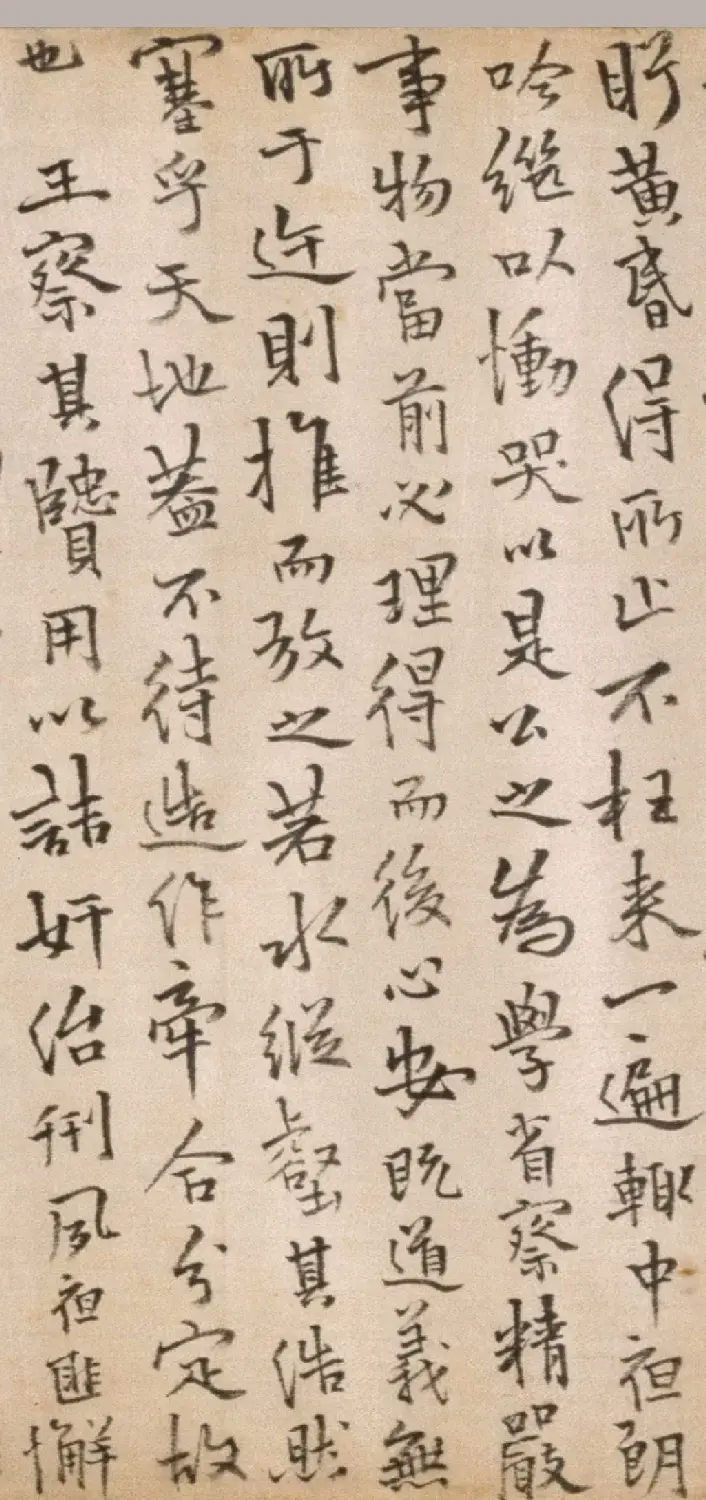 盱黄昏得所止不枉来一遍輙中夜朗
吟继以慟哭以是公之為學省察精嚴
事物當前必理得而後心安既道義無
所于迕則推而放之若水縱壑其浩然
塞乎天地葢不待造作牽合分定故
也 王察其贒用以詰奸治刑夙夜匪懈